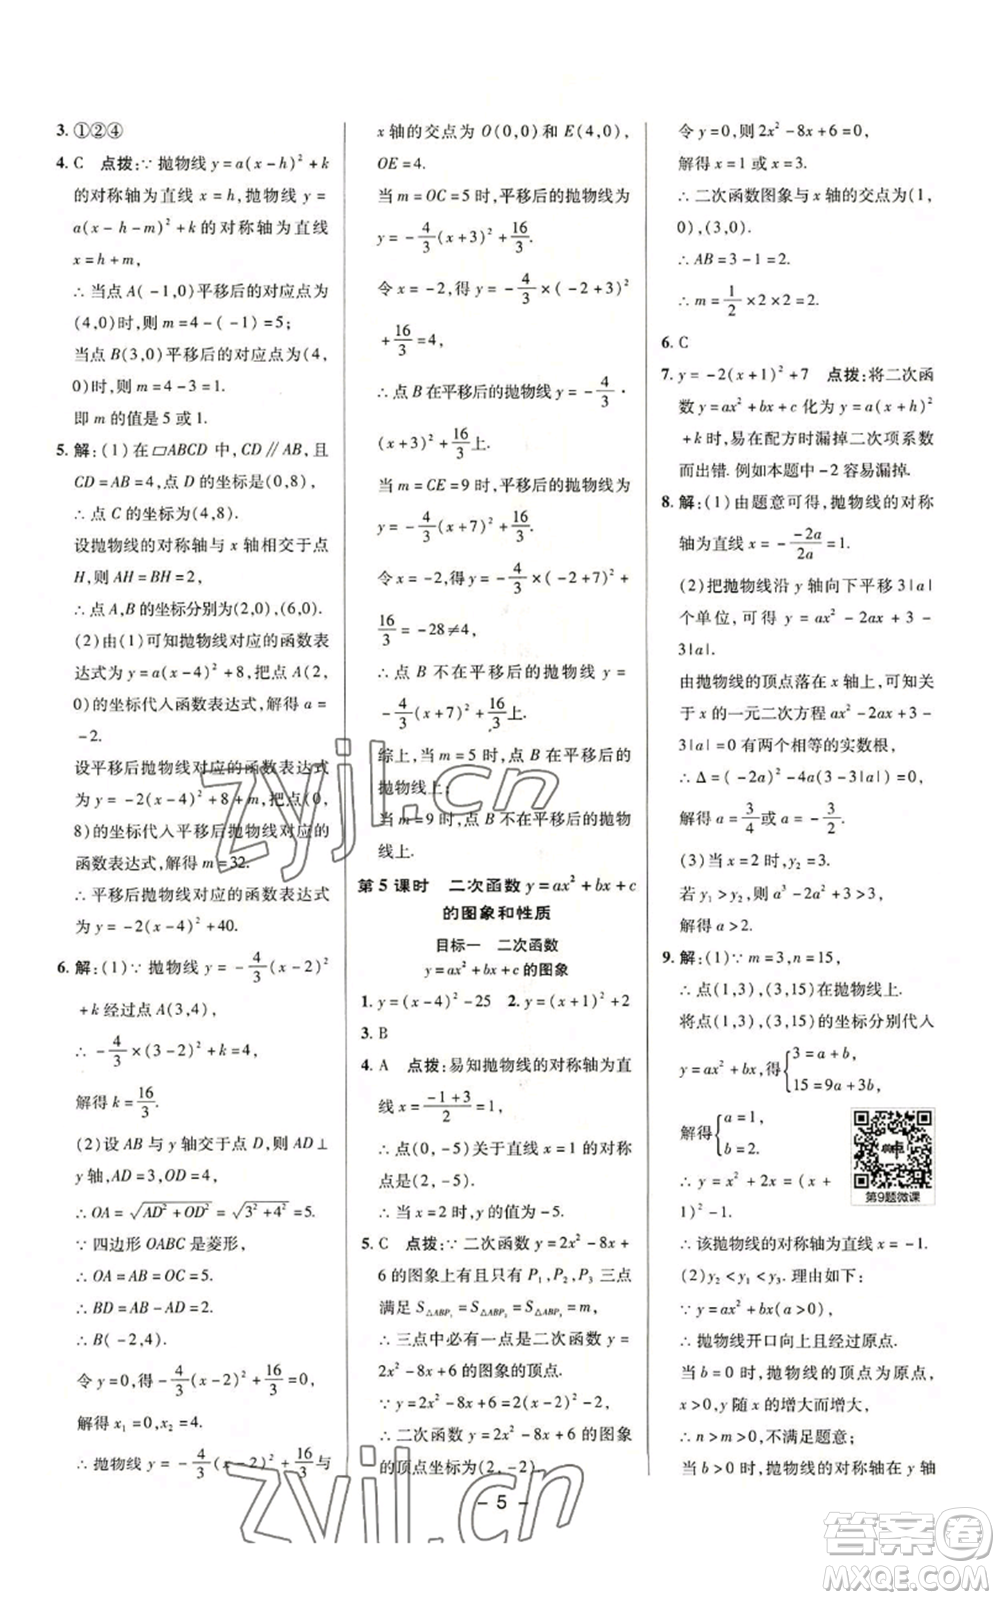 3. ①②④
4. C 点拨:∵ 抛物线 y=a(x-h)²+k
的对称轴为直线 x=h,抛物线 y=
a(x-h-m)²+k 的对称轴为直线
x=h+m,
∴ 当点 A(-1,0)平移后的对应点为
(4,0)时,则 m=4-(-1)=5;
当点 B(3,0)平移后的对应点为(4,
0)时,则 m=4-3=1.
即 m 的值是 5 或 1.
5. 解:(1)在 ▱ABCD 中,CD∥AB,且
CD=AB=4,点 D 的坐标是(0,8),
∴ 点 C 的坐标为(4,8).
设抛物线的对称轴与 x 轴相交于点
H,则 AH=BH=2,
∴ 点 A,B 的坐标分别为(2,0),(6,0).
(2)由(1)可知抛物线对应的函数表
达式为 y=a(x-4)²+8,把点 A(2,
0)的坐标代入函数表达式,解得 a=
-2.
设平移后抛物线对应的函数表达式
为 y=-2(x-4)²+8+m,把点(0,
8)的坐标代入平移后抛物线对应的
函数表达式,解得 m=32.
∴ 平移后抛物线对应的函数表达式
为 y=-2(x-4)²+40.
6. 解:(1)∵ 抛物线 y=-4/3(x-2)²
+k 经过点 A(3,4),
∴ -4/3×(3-2)²+k=4,
解得 k=16/3.
(2)设 AB 与 y 轴交于点 D,则 AD⊥
y 轴,AD=3,OD=4,
∴ OA=√(AD²+OD²)=√(3²+4²)=5.
∵ 四边形 OABC 是菱形,
∴ OA=AB=OC=5.
∴ BD=AB-AD=2.
∴ B(-2,4).
令 y=0,得-4/3(x-2)²+16/3=0,
解得 x₁=0,x₂=4.
∴ 抛物线 y=-4/3(x-2)²+16/3与
x 轴的交点为 O(0,0)和 E(4,0),
OE=4.
当 m=OC=5 时,平移后的抛物线为
y=-4/3(x+3)²+16/3.
令 x=-2,得 y=-4/3×(-2+3)²
+16/3=4,
∴ 点 B 在平移后的抛物线 y=-4/3·
(x+3)²+16/3上.
当 m=CE=9 时,平移后的抛物线为
y=-4/3(x+7)²+16/3.
令 x=-2,得 y=-4/3×(-2+7)²+
16/3=-28≠4,
∴ 点 B 不在平移后的抛物线 y=
-4/3(x+7)²+16/3上.
综上,当 m=5 时,点 B 在平移后的
抛物线上;
当 m=9 时,点 B 不在平移后的抛物
线上.
第 5 课时 二次函数 y=ax²+bx+c
的图象和性质
目标一 二次函数
y=ax²+bx+c 的图象
1. y=(x-4)²-25 2. y=(x+1)²+2
3. B
4. A 点拨:易知抛物线的对称轴为直
线 x=(-1+3)/2=1,
∴ 点(0,-5)关于直线 x=1 的对称
点是(2,-5).
∴ 当 x=2 时,y 的值为-5.
5. C 点拨:∵ 二次函数 y=2x²-8x+
6 的图象上有且只有 P₁,P₂,P₃ 三点
满足 S△ABP₁=S△ABP₂=S△ABP₃=m,
∴ 三点中必有一点是二次函数 y=
2x²-8x+6 的图象的顶点.
∵ y=2x²-8x+6=2(x-2)²-2,
∴ 二次函数 y=2x²-8x+6 的图象
的顶点坐标为(2,-2).
令 y=0,则 2x²-8x+6=0,
解得 x=1 或 x=3.
∴ 二次函数图象与 x 轴的交点为(1,
0),(3,0).
∴ AB=3-1=2.
∴ m=1/2×2×2=2.
6. C
7. y=-2(x+1)²+7 点拨:将二次函
数 y=ax²+bx+c 化为 y=a(x+h)²
+k 时,易在配方时漏掉二次项系数
而出错. 例如本题中-2 容易漏掉.
8. 解:(1)由题意可得,抛物线的对称
轴为直线 x=-(-2a)/2a=1.
(2)把抛物线沿 y 轴向下平移 3|a|
个单位,可得 y=ax²-2ax+3-
3|a|.
由抛物线的顶点落在 x 轴上,可知关
于 x 的一元二次方程 ax²-2ax+3-
3|a|=0 有两个相等的实数根,
∴ Δ=(-2a)²-4a(3-3|a|)=0.
解得 a=3/4或 a=-3/2.
(3)当 x=a 时,y₂=3.
若 y₁>y₂,则 a³-2a²+3>3,
解得 a>2.
9. 解:(1)∵ m=3,n=15,
∴ 点(1,3),(3,15)在抛物线上.
将点(1,3),(3,15)的坐标分别代入
y=ax²+bx,得{3=a+b, 15=9a+3b,
解得{a=1, b=2.
第9题微课
∴ y=x²+2x=(x+
1)²-1.
∴ 该抛物线的对称轴为直线 x=-1.
(2)y₂<y₁<y₃. 理由如下:
∵ y=ax²+bx(a>0),
∴ 抛物线开口向上且经过原点.
当 b=0 时,抛物线的顶点为原点,
x>0,则 y 随 x 的增大而增大,
∴ n>m>0,不满足题意;
当 b>0 时,抛物线的对称轴在 y 轴
- 5 -
zyjl.cn
zyjl.cn
答案圈
MXQE.COM